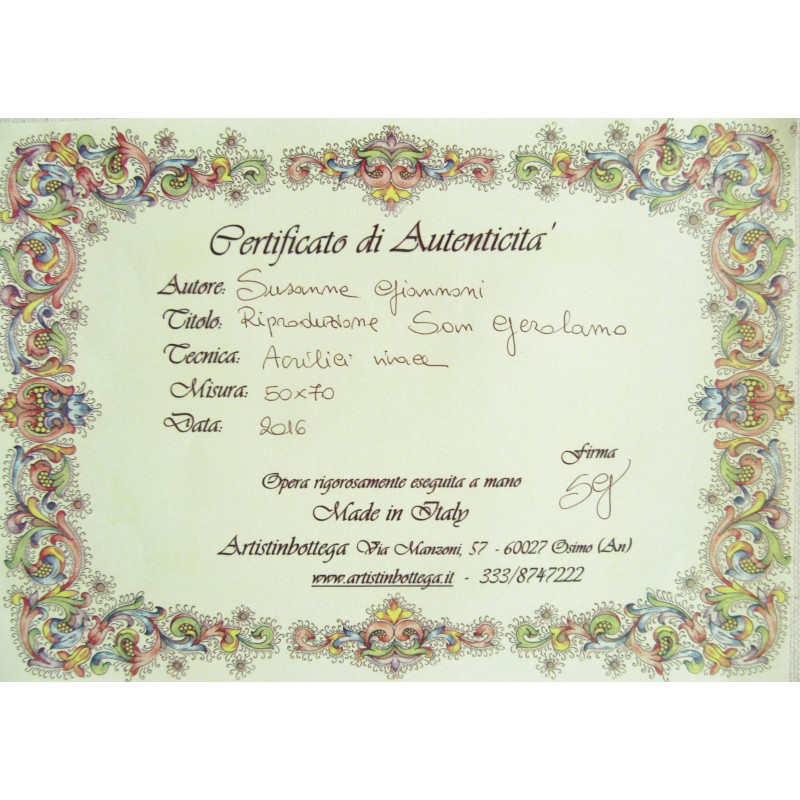 Certificato di Autenticita'
Autore: Susanna Giannoni
Titolo: Riproduzione San Gerolamo
Tecnica: Acrilici
Misura: 50x70
Data: 2016
Firma
SG
Opera rigorosamente eseguita a mano
Made in Italy
Artistinbottega Via Manzoni, 57 - 60027 Osimo (An)
www.artistinbottega.it - 333/8747222